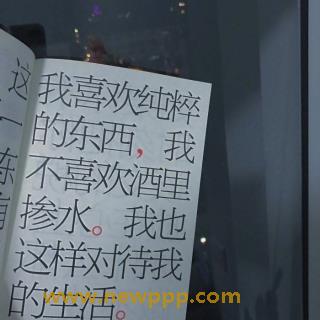 我喜欢纯粹
的东西，我
不喜欢酒里
掺水。我也
这样对待我
的生活。
www.newppp.com
这
一